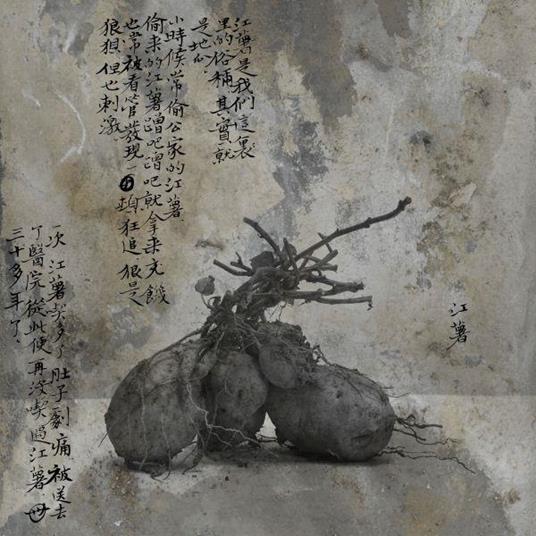 江薯是我們這裏
里的俗稱其實就
是地瓜
小時候常偷公家的江薯
偷来的江薯蹭吧蹭吧就拿来充饑
也常被看管發現一頓狂追很是
狼狽但也刺激
一次江薯喫多了肚子劇痛被送去
了醫院從此便再没喫過江薯
三十多年了
江薯